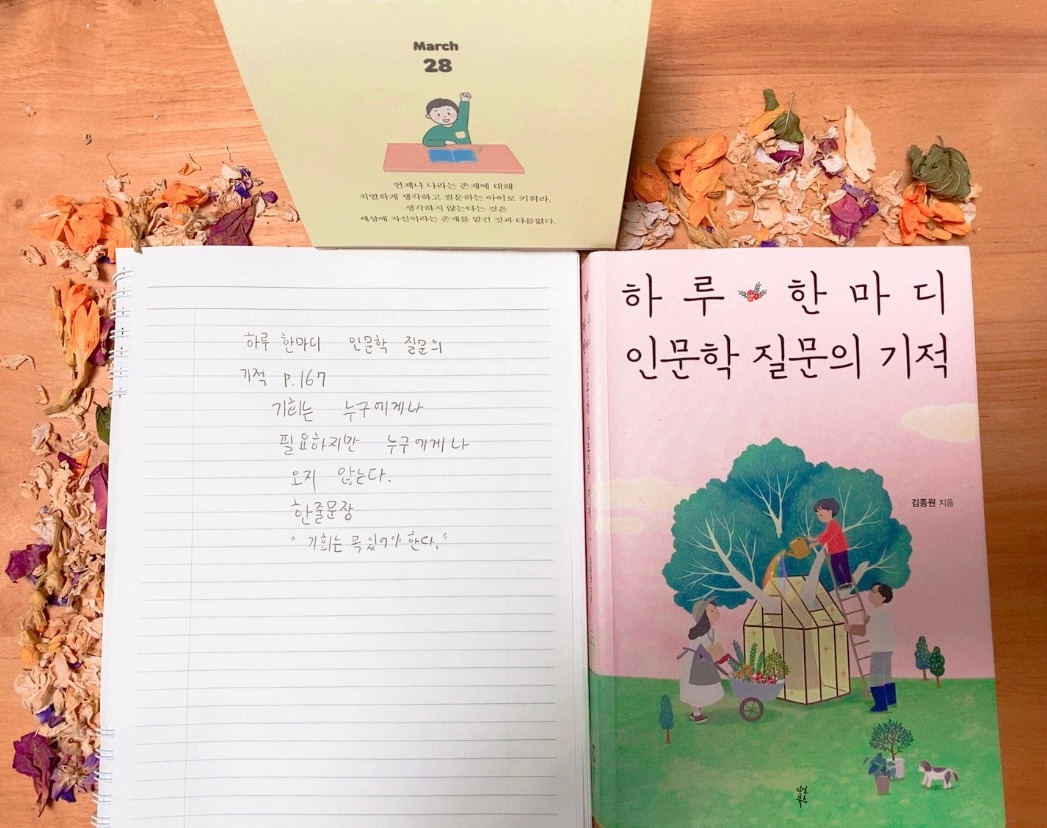 March
28
언제나 나라는 존재에 대해
치열하게 생각하고 질문하는 아이로 키워라.
생각하지 않는다는 것은
세상에 자신이라는 존재를 맡긴 것과 다름없다.
하루 한마디 인문학 질문의
기적 p.167
기회는 누구에게나
필요하지만 누구에게나
오지 않는다.
한줄문장
"기회는 꼭 있어야 한다."
하루 한마디
인문학 질문의 기적
김종원 지음